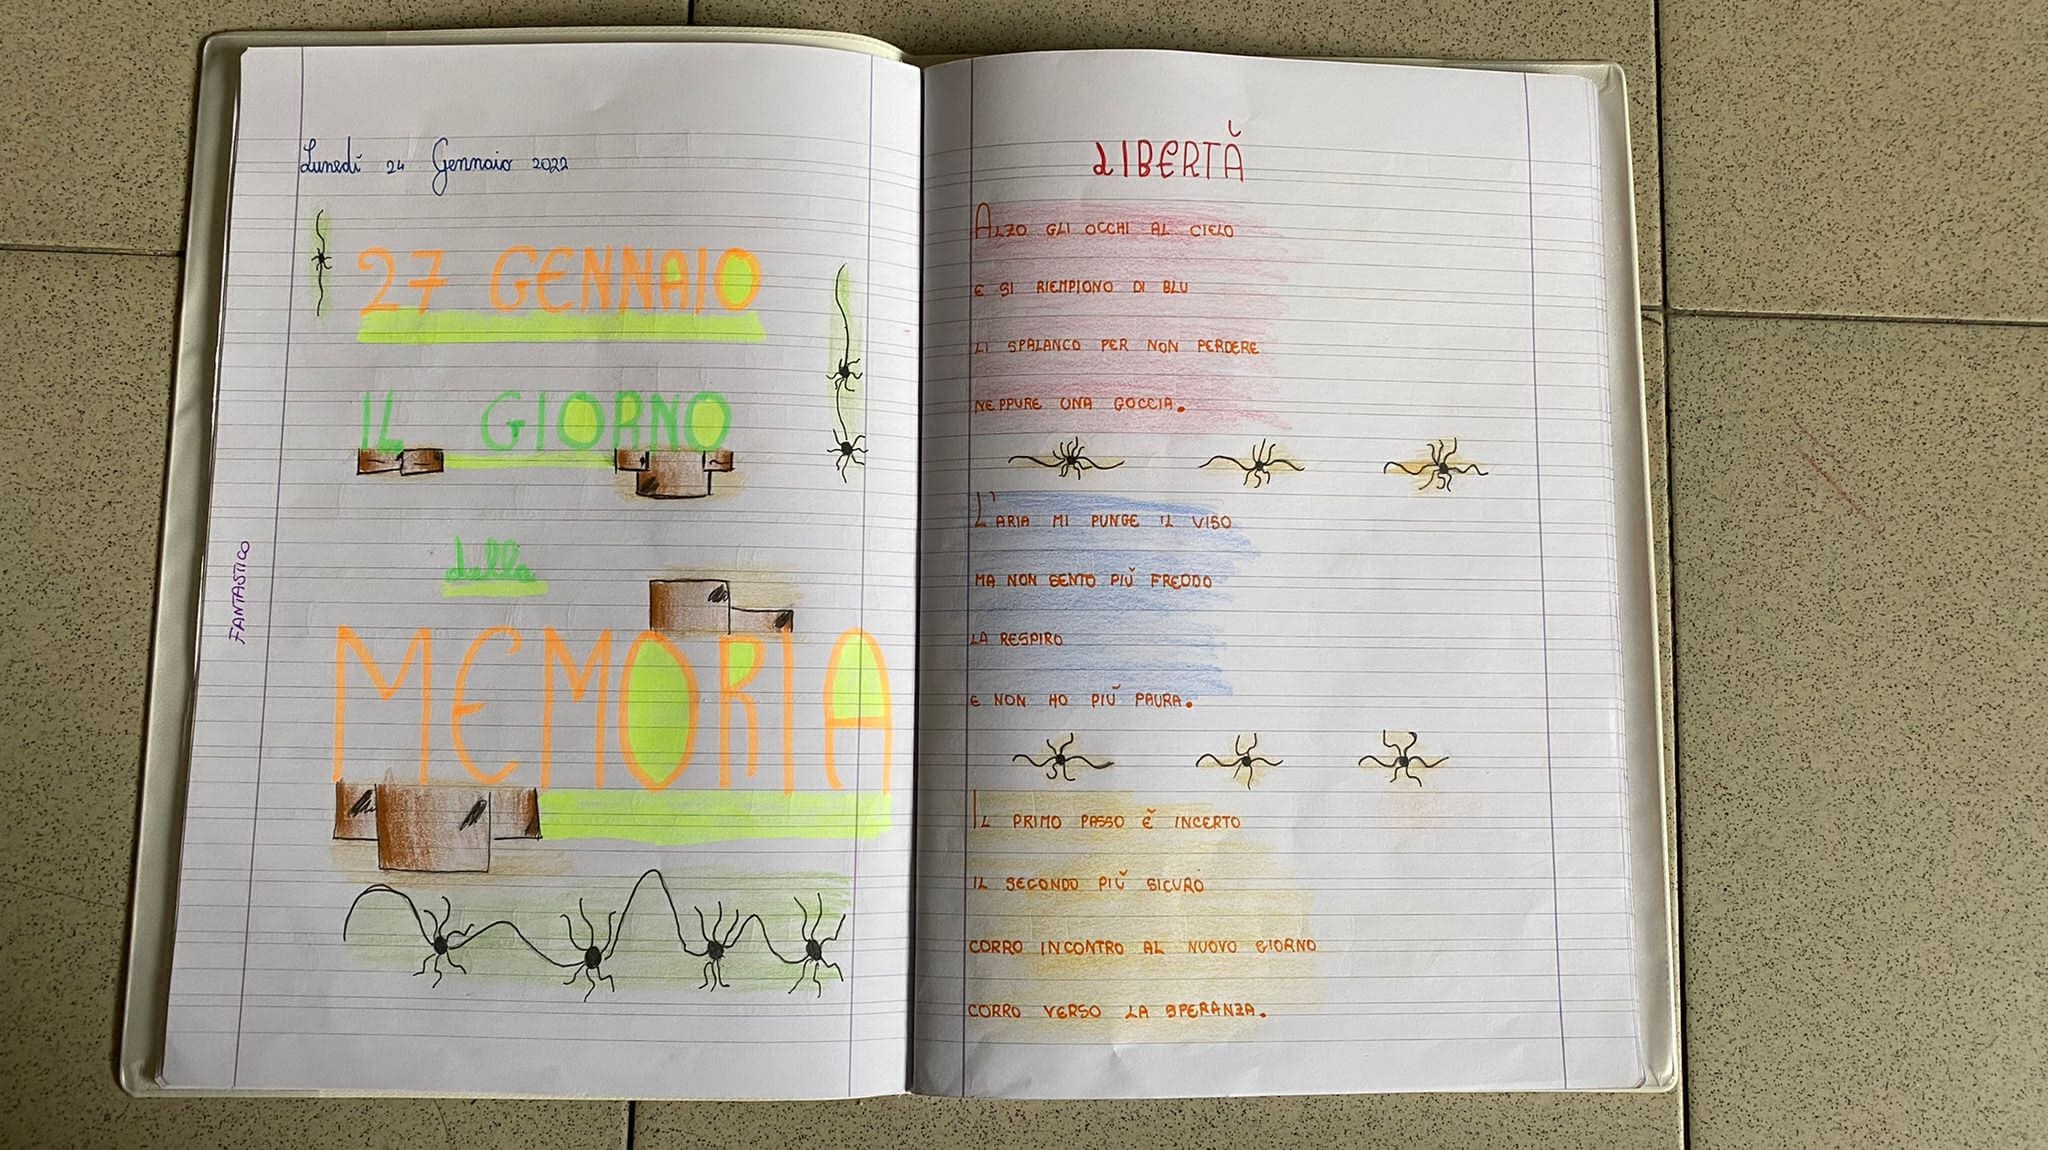 Lunedì 24 Gennaio 2022
27 GENNAIO
IL GIORNO
della
MEMORIA
FANTASTICO
LIBERTÀ
ALZO GLI OCCHI AL CIELO
E SI RIEMPIONO DI BLU
LI SPALANCO PER NON PERDERE
NEPPURE UNA GOCCIA.
L'ARIA MI PUNGE IL VISO
MA NON SENTO PIÙ FREDDO
LA RESPIRO
E NON HO PIÙ PAURA.
IL PRIMO PASSO È INCERTO
IL SECONDO PIÙ SICURO
CORRO INCONTRO AL NUOVO GIORNO
CORRO VERSO LA SPERANZA.